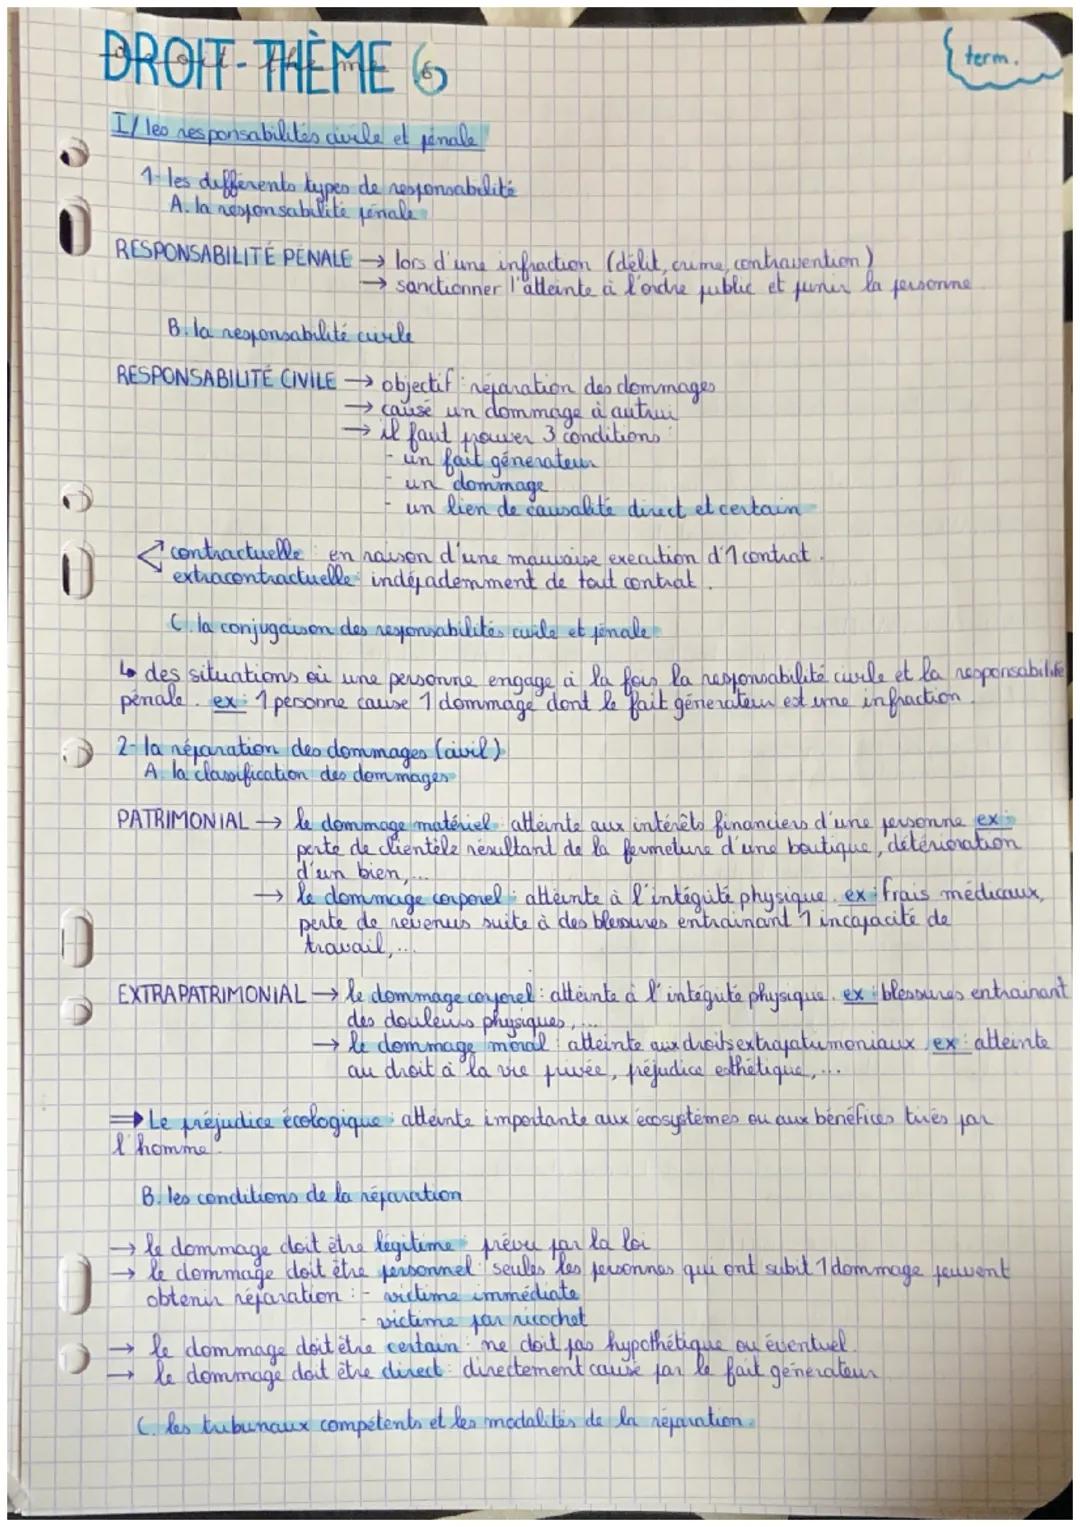 DROIT-THÈME 6
term.
I/ les responsabilités civile et pénale
1- les différents types de responsabilité
A. la responsabilité pénale
RESPONSABILITÉ PÉNALE → lors d'une infraction (délit, crime, contravention)
→ sanctionner l'atteinte à l'ordre public et punir la personne
B. la responsabilité civile
RESPONSABILITÉ CIVILE → objectif : réparation des dommages
→ cause un dommage à autrui
→ il faut prouver 3 conditions :
- un fait générateur
- un dommage
- un lien de causalité direct et certain
contractuelle : en raison d'une mauvaise execution d'1 contrat.
extracontractuelle : indépademment de tout contrat.
C. la conjugaison des responsabilités civile et pénale
↳ des situations où une personne engage à la fois la responsabilité civile et la responsabilité
pénale. ex : 1 personne cause 1 dommage dont le fait générateur est une infraction.
2- la réparation des dommages (civil)
A. la classification des dommages
PATRIMONIAL → le dommage matériel : atteinte aux intérêts financiers d'une personne ex :
perte de clientèle résultant de la fermeture d'une boutique, détérioration
d'un bien,...
→ le dommage corporel : atteinte à l'intégrité physique. ex : frais médicaux,
perte de revenus suite à des blessures entrainant 1 incapacité de
travail,...
EXTRAPATRIMONIAL → le dommage corporel : atteinte à l'intégrité physique. ex : blessures entrainant
des douleurs physiques,...
→ le dommage moral : atteinte aux droits extrapatrimoniaux ex : atteinte
au droit à la vie privée, préjudice esthétique,...
⇒ Le préjudice écologique : atteinte importante aux écosystèmes ou aux bénéfices tirés par
l'homme.
B. les conditions de la réparation
→ le dommage doit être légitime : prévu par la loi
→ le dommage doit être personnel : seules les personnes qui ont subit 1 dommage peuvent
obtenir réparation : - victime immédiate
- victime par ricochet
→ le dommage doit être certain : ne doit pas hypothétique ou éventuel.
→ le dommage doit être direct : directement causé par le fait générateur
C. les tribunaux compétents et les modalités de la réparation.